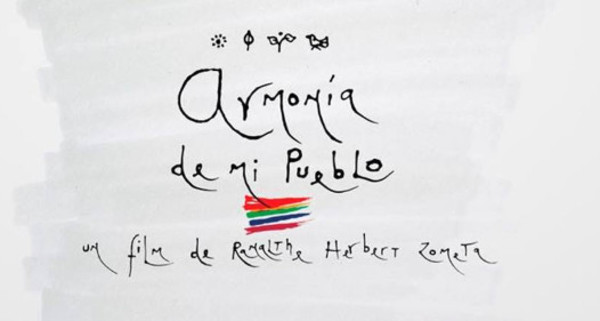 Armonía
de mi Pueblo
un film de Ramalthe Herbert Zometa